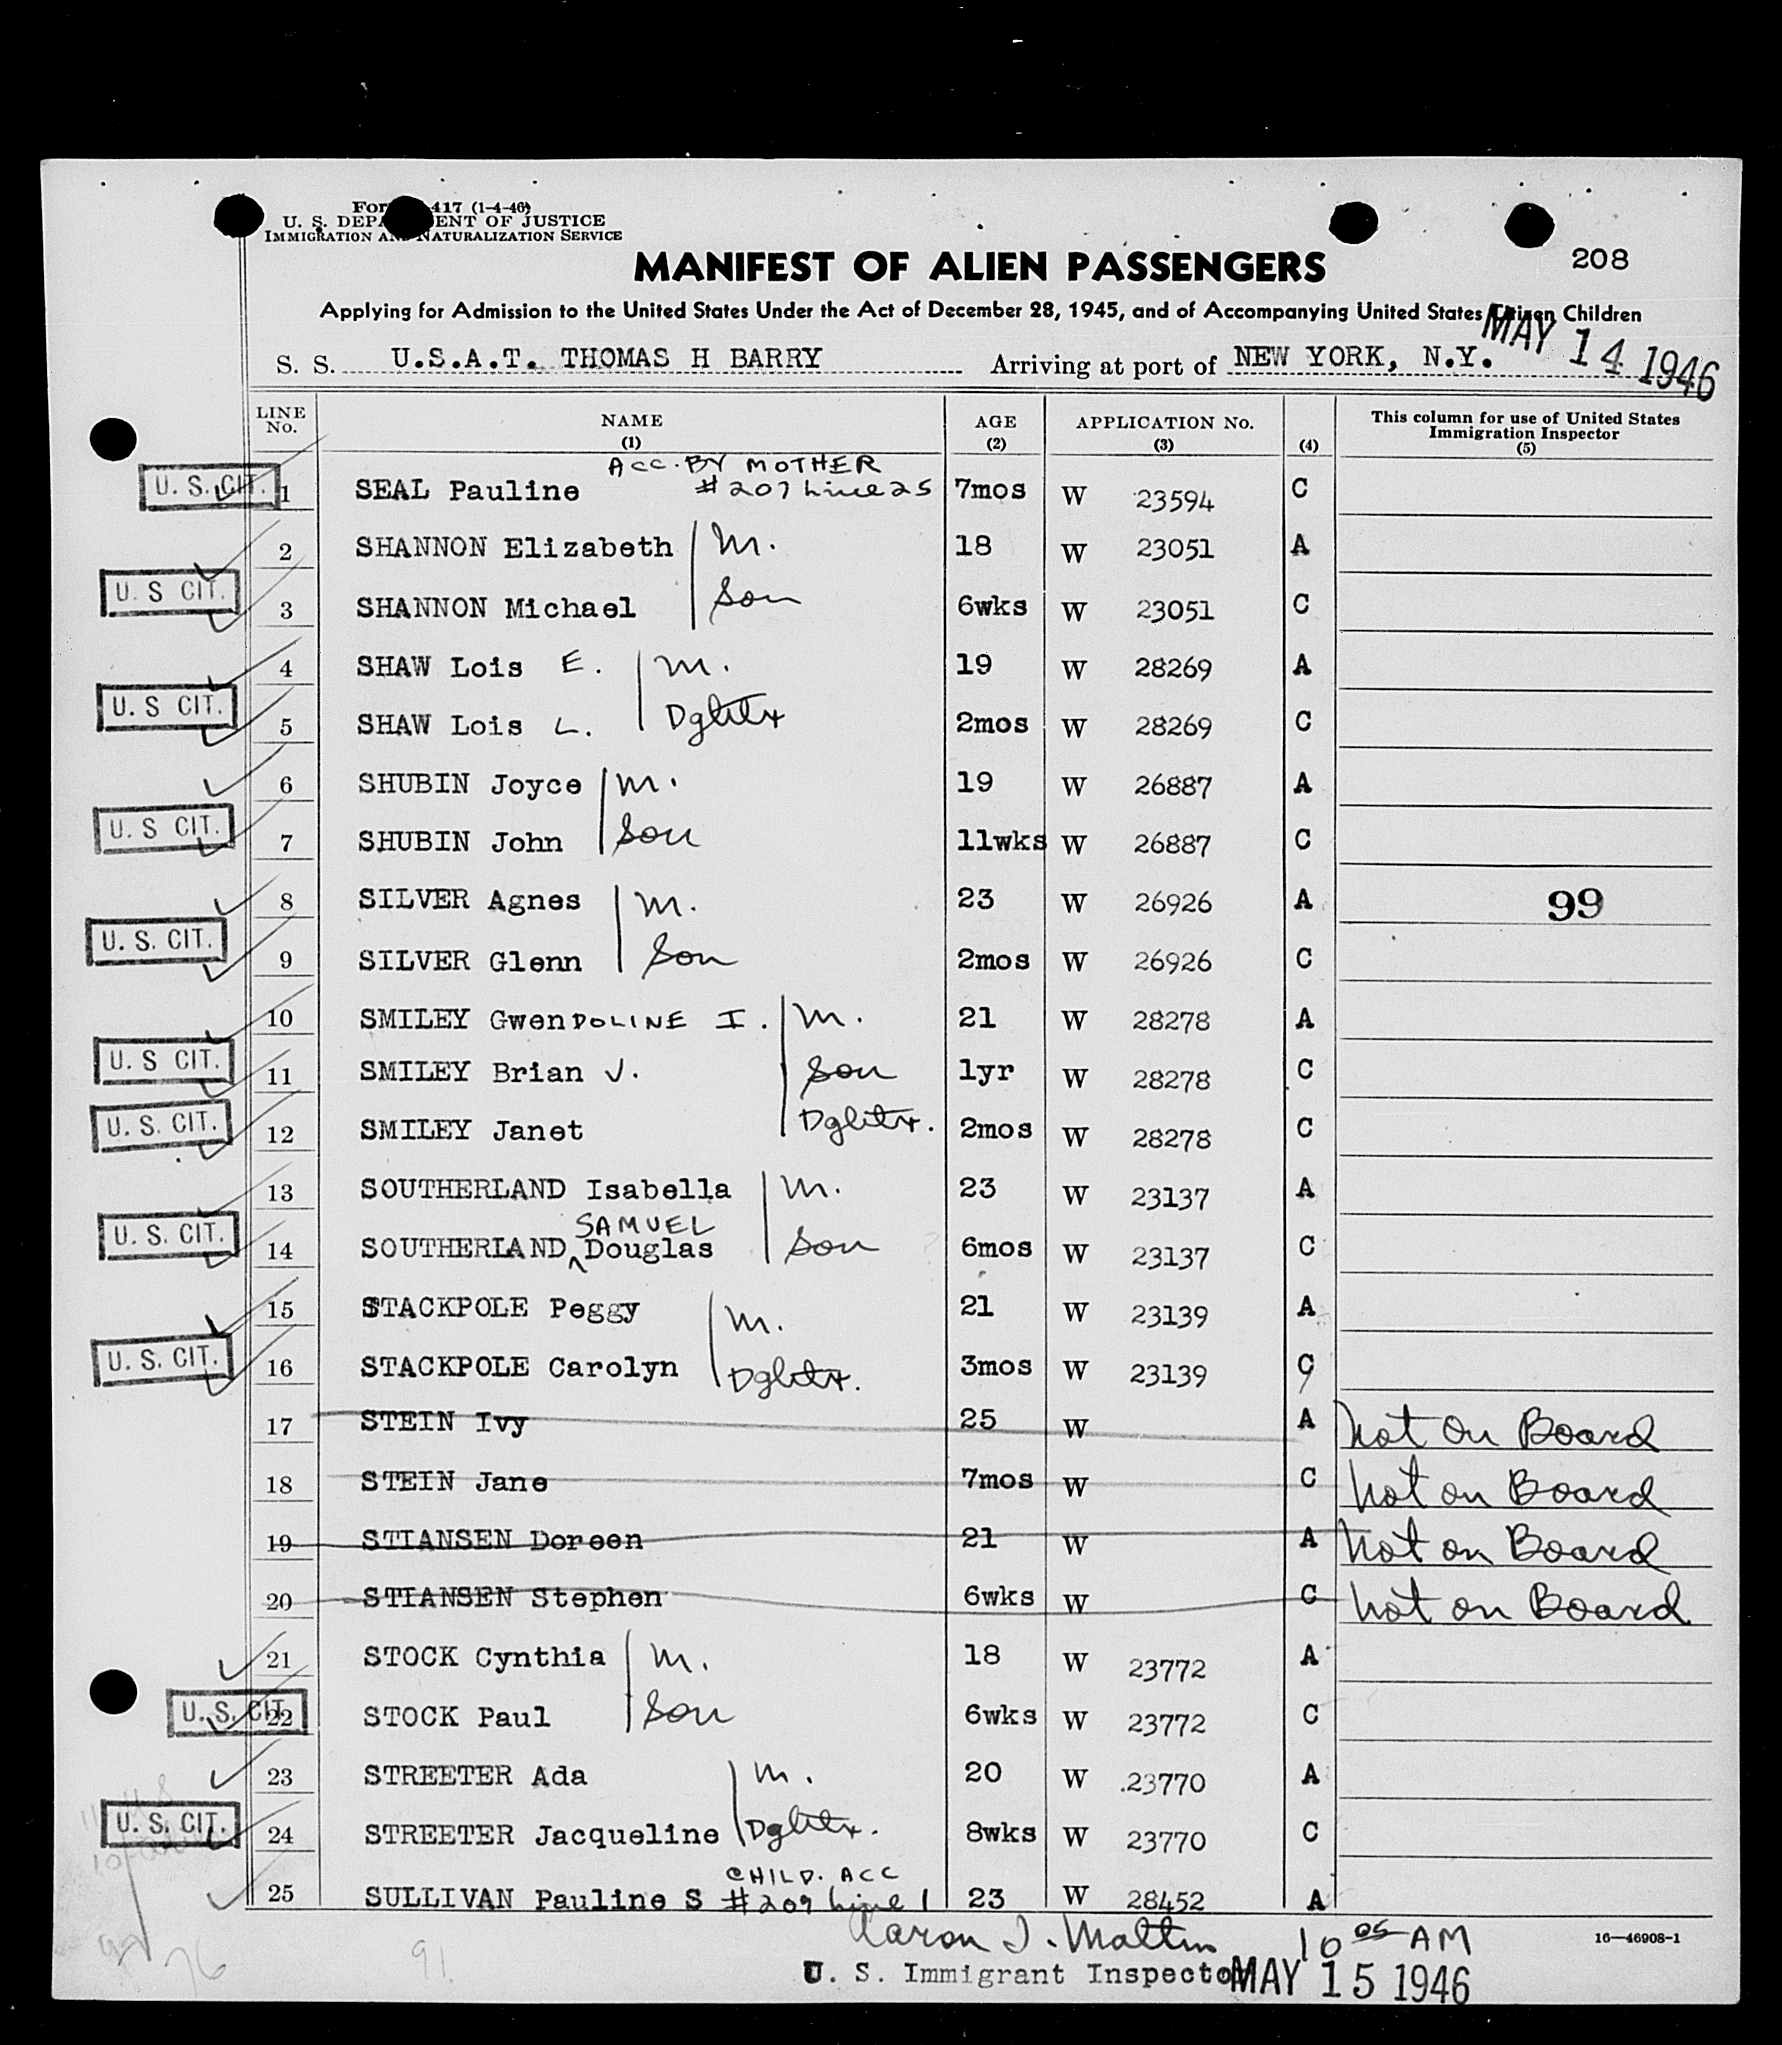 417 (1-4-46)
U. S. DEPARTMENT OF JUSTICE
IMMIGRATION AND NATURALIZATION SERVICE
MANIFEST OF ALIEN PASSENGERS
208
Applying for Admission to the United States Under the Act of December 28, 1945, and of Accompanying United States Citizen Children
MAY 14 1946
S. S. U.S.A.T. THOMAS H BARRY Arriving at port of NEW YORK, N.Y.
LINE No. NAME (1) AGE (2) APPLICATION No. (3) (4) This column for use of United States Immigration Inspector (5)
ACC. BY MOTHER
U. S. CIT. 1 SEAL Pauline #207 Line 25 7mos W 23594 C
2 SHANNON Elizabeth m. 18 W 23051 A
U. S CIT. 3 SHANNON Michael Son 6wks W 23051 C
4 SHAW Lois E. m. 19 W 28269 A
U. S CIT. 5 SHAW Lois L. Dghtr 2mos W 28269 C
6 SHUBIN Joyce m. 19 W 26887 A
U. S CIT. 7 SHUBIN John Son 11wks W 26887 C
8 SILVER Agnes m. 23 W 26926 A 99
U. S. CIT. 9 SILVER Glenn Son 2mos W 26926 C
10 SMILEY GwenDOLINE I. m. 21 W 28278 A
U. S CIT. 11 SMILEY Brian J. Son 1yr W 28278 C
U. S. CIT. 12 SMILEY Janet Dghtr. 2mos W 28278 C
13 SOUTHERLAND Isabella m. 23 W 23137 A
SAMUEL
U. S. CIT. 14 SOUTHERLAND Douglas Son 6mos W 23137 C
15 STACKPOLE Peggy m. 21 W 23139 A
U. S. CIT. 16 STACKPOLE Carolyn Dghtr. 3mos W 23139 C
17 STEIN Ivy 25 W A Not On Board
18 STEIN Jane 7mos W C Not on Board
19 STIANSEN Doreen 21 W A Not on Board
20 STIANSEN Stephen 6wks W C Not on Board
21 STOCK Cynthia m. 18 W 23772 A
U. S. CIT. 22 STOCK Paul Son 6wks W 23772 C
23 STREETER Ada m. 20 W 23770 A
U. S. CIT. 24 STREETER Jacqueline Dghtr. 8wks W 23770 C
CHILD. ACC
25 SULLIVAN Pauline S #209 Line 1 23 W 28452 A
Aaron I. Maltin 10 05 AM 16—46908-1
U. S. Immigrant Inspector MAY 15 1946
76 91